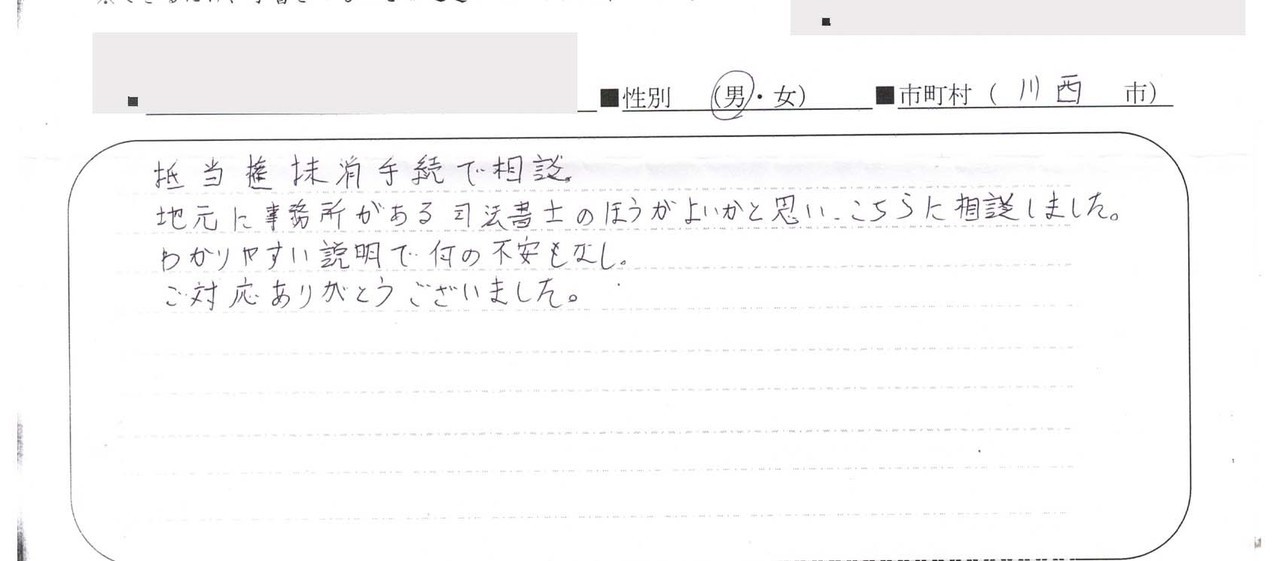 ■性別 (男・女) ■市町村 ( 川西 市)
抵当権抹消手続で相談。
地元に事務所がある司法書士のほうがよいかと思い、こちらに相談しました。
わかりやすい説明で何の不安もなし。
ご対応ありがとうございました。